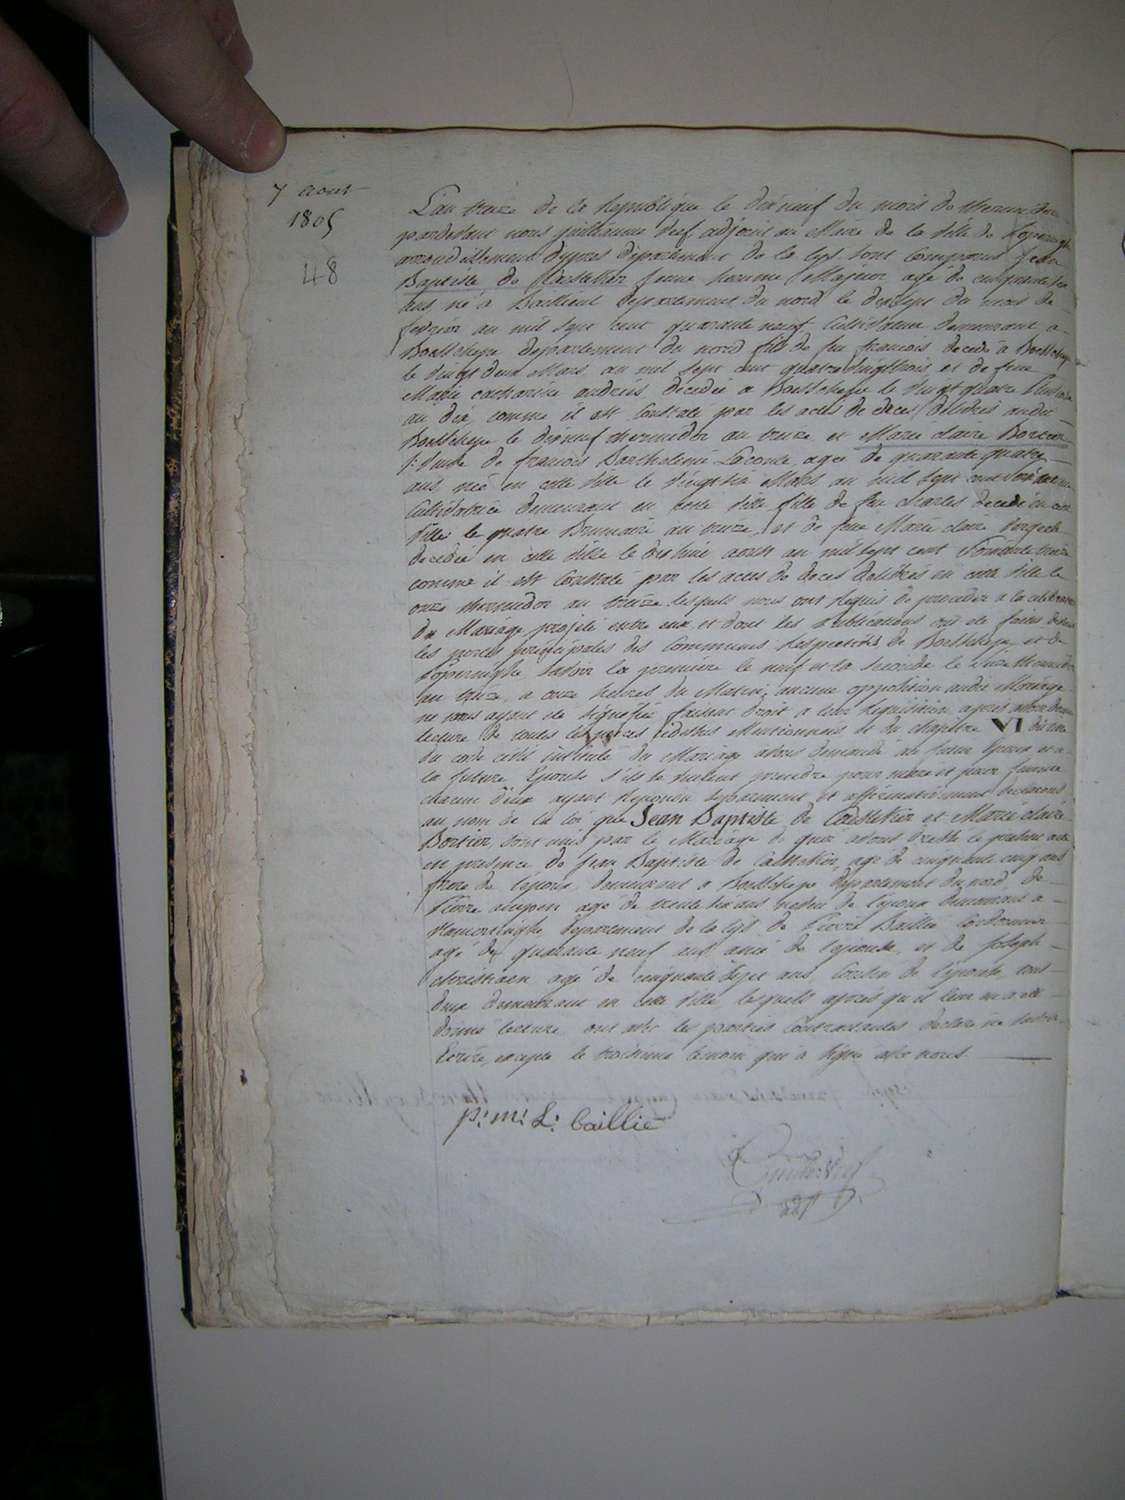 7 aout
1805
48
L'an treize de la Republique le dix neuf du mois de thermidor
pardevant nous guillaume Vref adjoint au Maire de la Ville de Poperinghe
arrondissement d'ypres departement de la lys sont comparus Jean
Baptiste de jeune homme Majeur agé de cinquante six
ans né a Bailleul departement du nord le dix sept du mois de
fevrier au mil sept cent quarante neuf Cultivateur demeurant a
Boeschepe departement du nord fils de feu francois decedé a Boeschepe
le vingt deux Mars au mil sept cent quatre vingt trois et de feue
Marie catharine andries decedée a Boeschepe le vingt quatre
an dix comme il est Constaté par les actes de deces delivrés audit
Boeschepe le dix neuf thermidor an treize et Marie claire Bortier
Veuve de francois Bartholomé Laconte agée de quarante quatre
ans née en cette ville le vingt six Mars au mil sept cent soixante un
Cultivatrice demeurant en cette ville fille de feu charles decedé en cette
Ville le quatre Brumaire an treize, et de feue Marie claire
decedée en cette Ville le dix huit aout au mil sept cent soixante treize
comme il est Constaté par les actes de deces delivrés en cette Ville le
onze thermidor an treize lesquels nous ont requis de proceder a la celebration
du Mariage projeté entre eux et dont les publications ont été faites devant
les portes principales des Communes Respectives de Boeschepe et de
Poperinghe savoir la premiere le neuf et la seconde le seize thermidor
an treize, a onze heures du Matin; aucune opposition audit Mariage
ne nous ayant été signifiée faisant droit a leur requisition apres avoir donné
lecture de toutes les pieces cidessus Mentionnées et du chapitre VI du titre
du code civil intitulé du Mariage avons demandé au futur Epoux et a
la future Epouse s'ils se veulent prendre pour mari et pour femme
chacun d'eux ayant repondu separement et affirmativement declarons
au nom de la loi que Jean Baptiste de et Marie claire
Bortier sont unis par le Mariage de quoi avons dressé le present acte
en presence de Jean Baptiste de agé de cinquante cinq ans
frere de l'epoux demeurant a Boeschepe departement du nord de
Pierre agé de trente six ans de l'epoux demeurant a
Vlamertinghe departement de la lys de Pierre Baillie Cordonnier
agé de quarante neuf ans ami de l'epouse, et de Joseph
christiaen agé de cinquante sept ans Cousin de l'epouse tous
deux demeurant en cette Ville, lesquels après qu'il leur en a été
donné lecture ont avec les parties Contractantes declaré ne savoir
Ecrire, excepté le troisieme temoin qui a signé avec nous.
p: m: L: baillie
Guill: Vref
adj